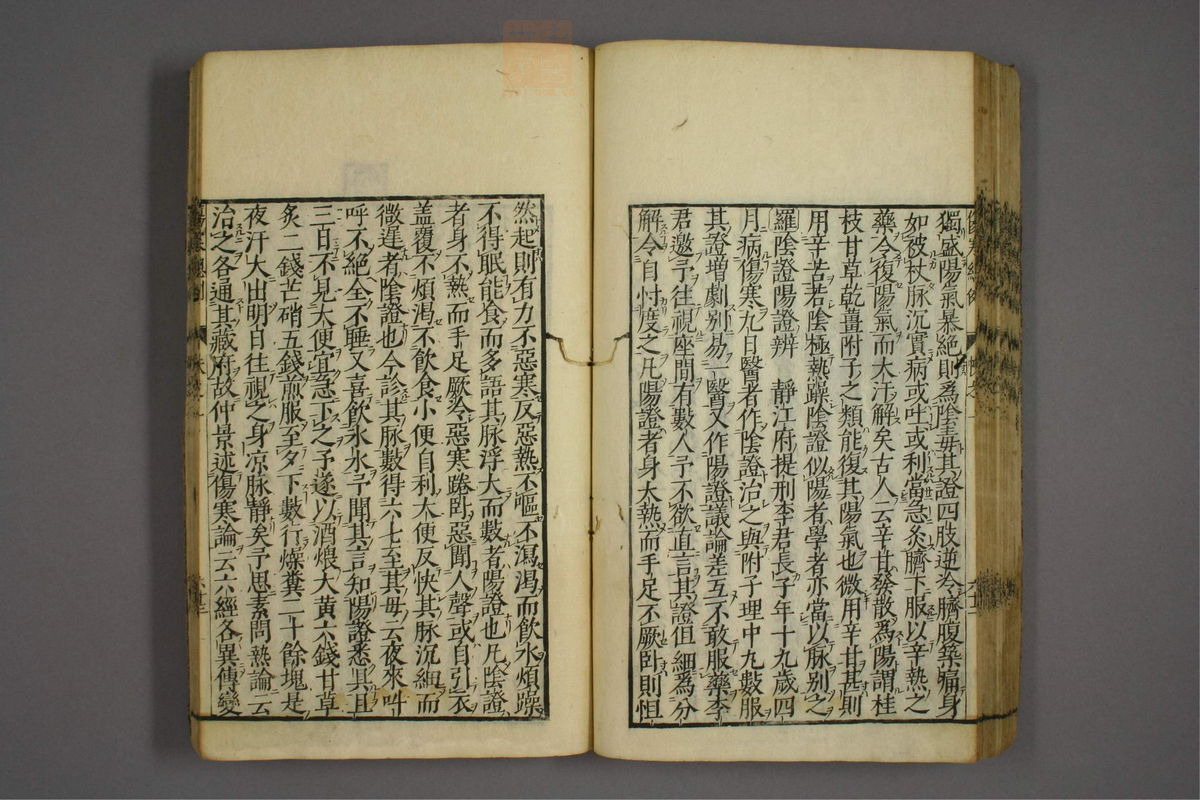 獨盛陽氣暴絶則爲陰毒其證四肢逆冷臍腹築痛身
如被杖脉沉實病或吐或利當急灸臍下服以辛熱之
藥令復陽氣而大汗解矣古人云辛甘發散爲陽謂桂
枝甘草乾薑附子之類能復其陽氣也微用辛甘甚則
用辛苦若陰極熱躁陰證似陽者學者亦當以脉別之
羅陰證陽證辨 靜江府提刑李君長子年十九歲四
月病傷寒九日醫者作陰證治之與附子理中丸數服
其證增劇別易一醫又作陽證議論差互不敢服藥李
君邀予往視座間有數人予不欲直言其證但細爲分
解令自忖度之凡陽證者身大熱而手足不厥臥則怛
然起則有力不惡寒反惡熱不嘔不瀉渴而飲水煩躁
不得眠能食而多語其脉浮大而數者陽證也凡陰證
者身不熱而手足厥冷惡寒踡臥惡聞人聲或自引衣
盖覆不煩渴不飲食小便自利大便反快其脉沉細而
微遲者陰證也今診其脉數得六七至其母云夜來叫
呼不絶全不睡又喜飲氷水予聞其言知陽證悉具且
三日不見大便宜急下之予遂以酒煨大黃六錢甘草
炙二錢芒硝五錢煎服至夕下數行燥糞二十餘塊是
夜汗大出明日往視之身凉脉靜矣予思素問熱論云
治之各通其藏府故仲景述傷寒論云六經各異傳變